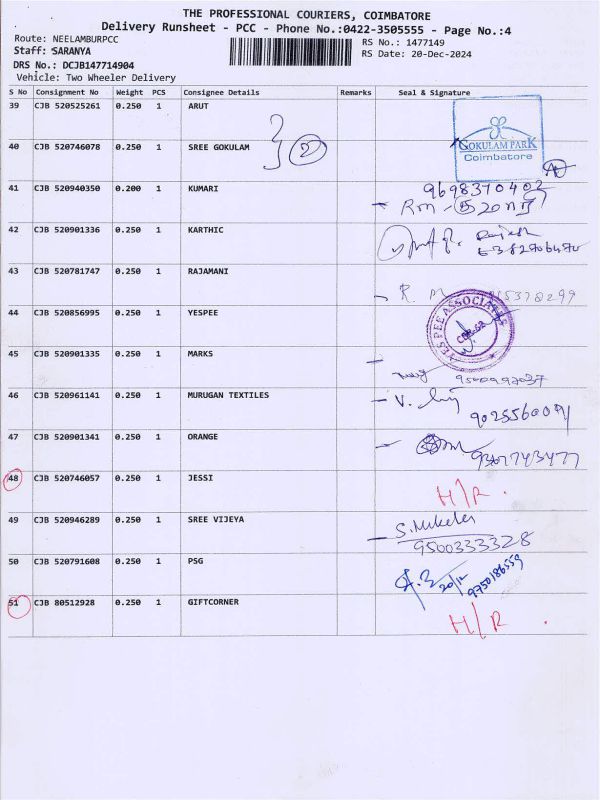 THE PROFESSIONAL COURIERS, COIMBATORE
Delivery Runsheet - PCC - Phone No.:0422-3505555 - Page No.:4
Route: NEELAMBURPCC
RS No.: 1477149
Staff: SARANYA
RS Date: 20-Dec-2024
DRS No.: DCJB147714904
Vehicle: Two Wheeler Delivery
S No Consignment No Weight PCS Consignee Details Remarks Seal & Signature
39 CJB 520525261 0.250 1 ARUT
40 CJB 520746078 0.250 1 SREE GOKULAM 2 GOKULAM PARK
Coimbatore
41 CJB 520940350 0.200 1 KUMARI 9698370402
42 CJB 520901336 0.250 1 KARTHIC Rajesh
43 CJB 520781747 0.250 1 RAJAMANI
44 CJB 520856995 0.250 1 YESPEE YESPEE ASSOCIATES
45 CJB 520901335 0.250 1 MARKS
46 CJB 520961141 0.250 1 MURUGAN TEXTILES
47 CJB 520901341 0.250 1 ORANGE
48 CJB 520746057 0.250 1 JESSI H/R
49 CJB 520946289 0.250 1 SREE VIJEYA 9500333328
50 CJB 520791608 0.250 1 PSG 20/12 9750186559
51 CJB 80512928 0.250 1 GIFTCORNER H/R